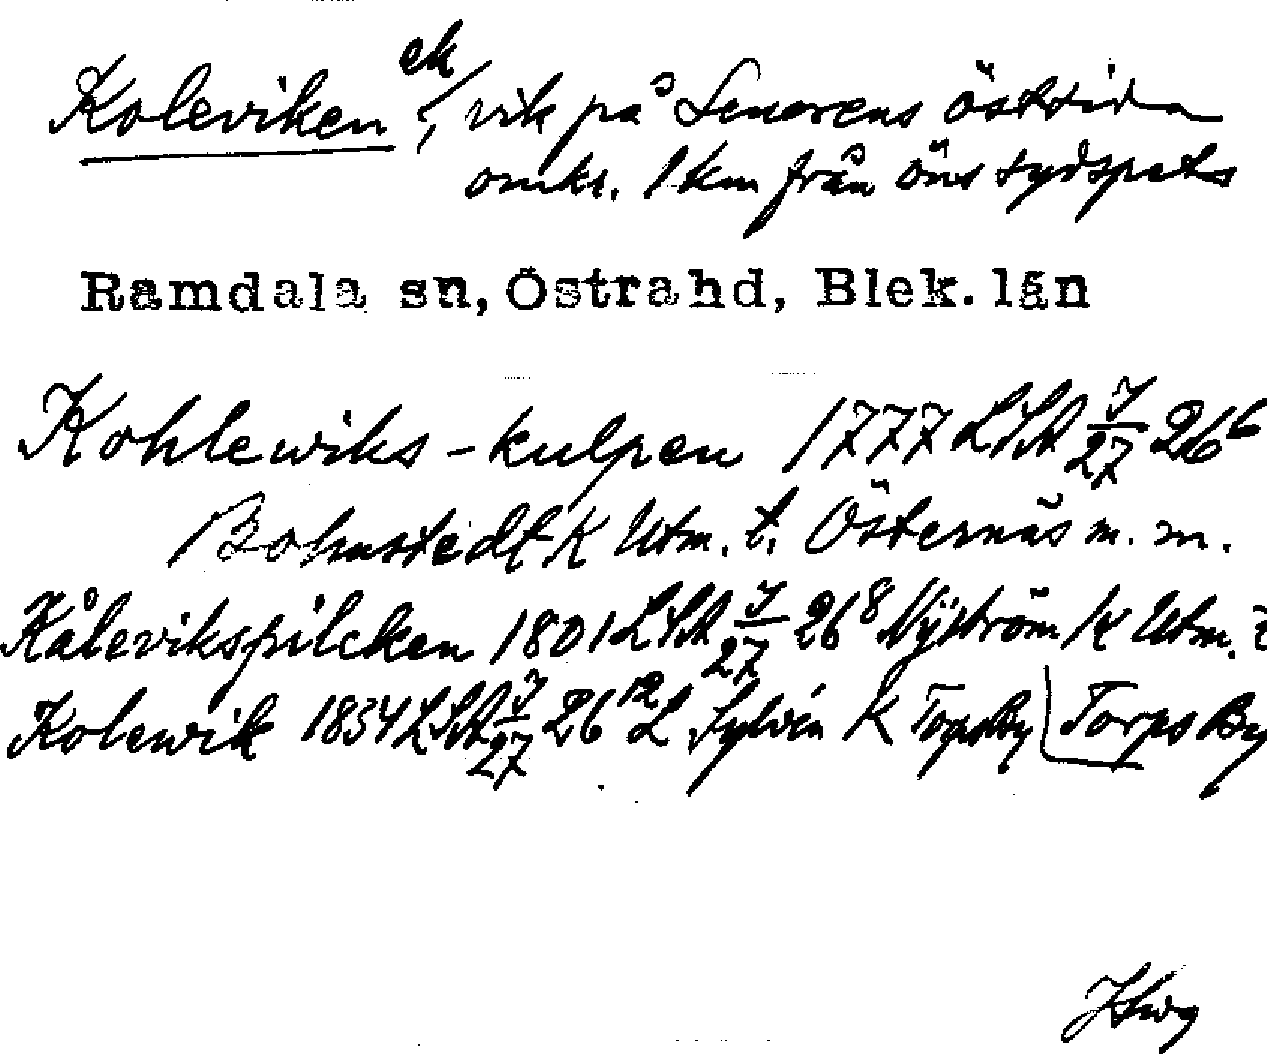 Koleviken ek/, vik på Senorens östsida
omkr. 1 km från öns sydspets
Ramdala sn, Östrahd, Blek. län
Kohlewiks-kulpen 1777 LSA J/27 26⁶
Bohnstedt K Utm. t. Östernäs m. m.
Kålevikspilcken 1801 LSA J/27 26⁸ Nyström K Utm.
Kolewik 1834 LSA J/27 26¹² L Sylvén K TopsBy Torps By